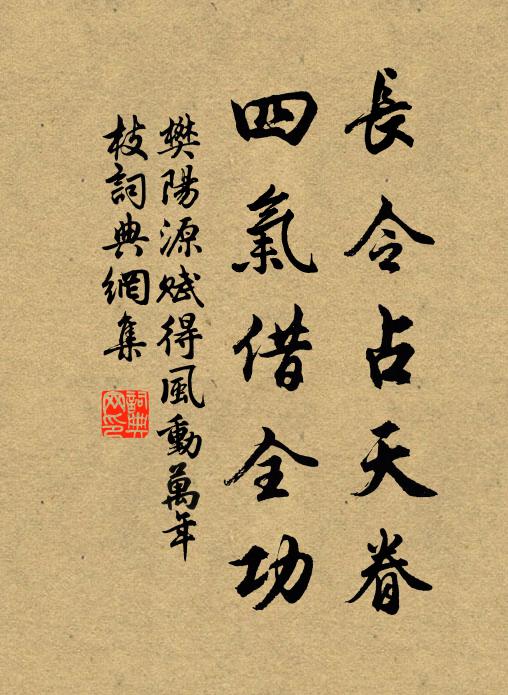 長令占天眷
四氣借全功
樊陽源賦得風動萬年
枝詞典網集
詞典
网印